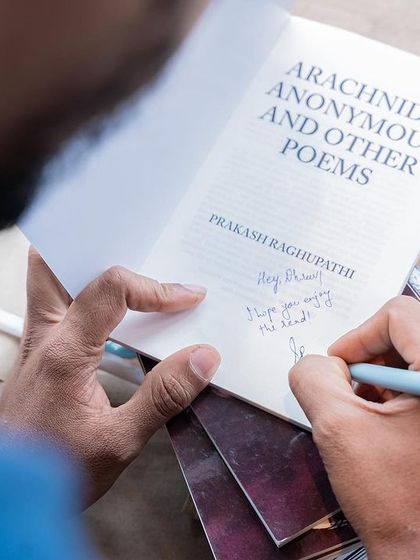 ARACHNID
ANONYMOU
AND OTHER
POEMS
PRAKASH RAGHUPATHI
Hey, Dhruv!
I hope you enjoy
the read!